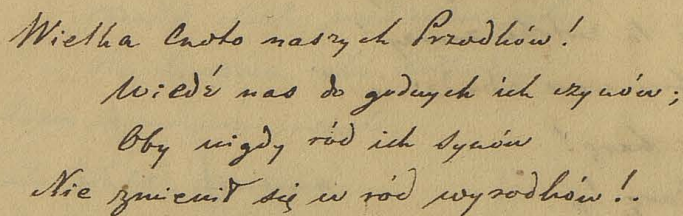 Wielka Cnoto naszych Przodków!
Wiedź nas do godnych ich czynów;
Oby nigdy ród ich synów
Nie zmienił się w ród wyrodków!.